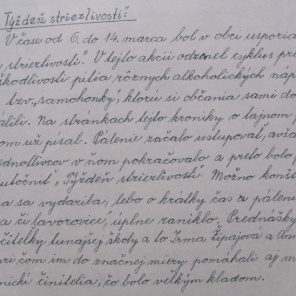 Týždeň striezlivosti:
V čase od 6. do 14. marca bol v obci usporia
striezlivosti." V tejto akcii odznel cyklus pre
škodlivosti pitia rôznych alkoholických náp
tzv. "samohonky", ktorú si občania sami do
álili. Na stránkach tejto kroniky o tajnom p
om už písal. Pálenie začalo ustupovať, avša
ednotlivcov v ňom pokračovalo a preto bolo
utočniť "Týždeň striezlivosti. Možno konšt
a sa vydarila, lebo o krátky čas za pálen
a či "tavorovice", úplne zaniklo. Prednášky
čiteľky tunajšej školy a to Irma Žipajová a
ri čom im do značnej miery pomáhali aj m
nickí činitelia, čo bolo veľkým kladom.